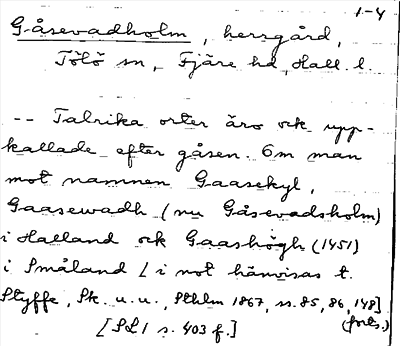 1-4
Gåsevadholm, herrgård,
Tölö sn, Fjäre hd, Hall. l.
-- Talrika orter äro ock upp-
kallade efter gåsen. Om man
mot namnen Gaasekyl,
Gaasewadh (nu Gåsevadsholm)
i Halland ock Gaashögh (1451)
i Småland [i not hänvisas t.
Styffe, Sk. u. u., Sthlm 1867, ss. 85, 86, 148]
[SL1 s. 403 f.] (forts.)